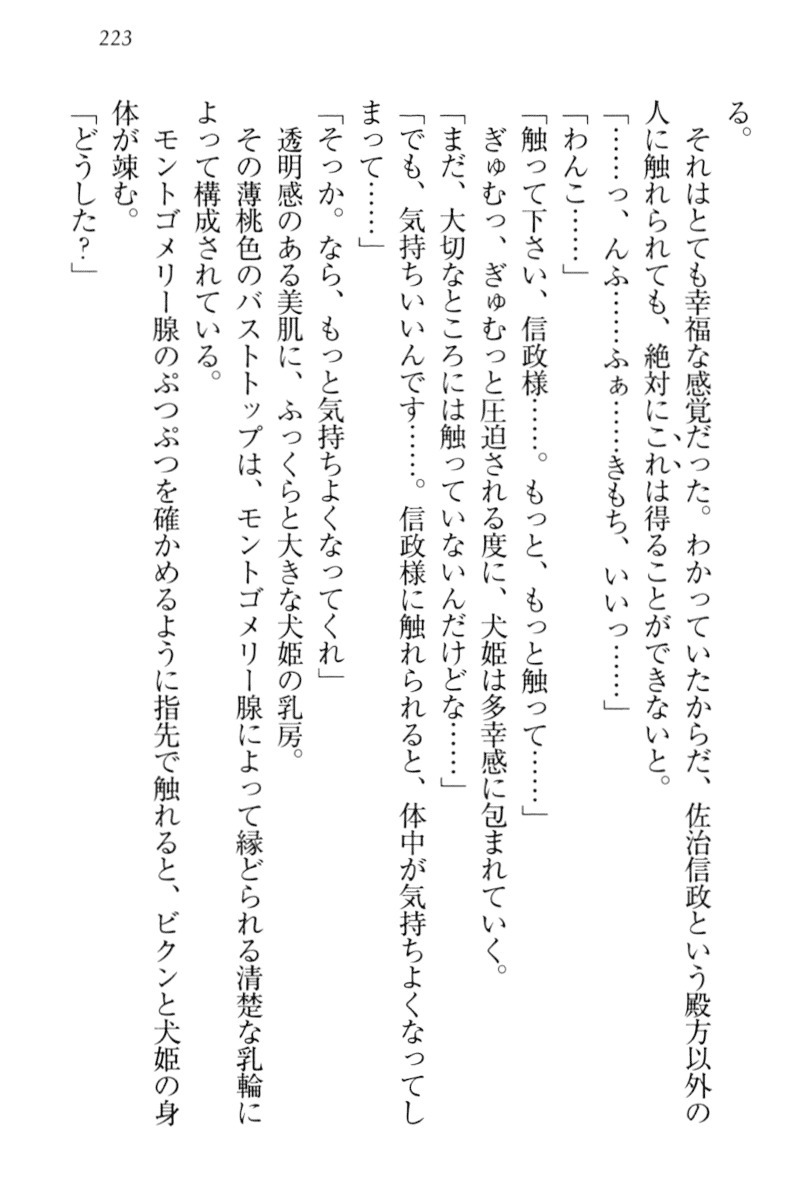 223
る。
　それはとても幸福な感覚だった。わかっていたからだ、佐治信政という殿方以外の
人に触れられても、絶対にこれは得ることができないと。
「……っ、んふ……ふぁ……きもち、いいっ……」
「わんこ……」
「触って下さい、信政様……。もっと、もっと触って……」
　ぎゅむっ、ぎゅむっと圧迫される度に、犬姫は多幸感に包まれていく。
「まだ、大切なところには触っていないんだけどな……」
「でも、気持ちいいんです……。信政様に触れられると、体中が気持ちよくなってし
まって……」
「そっか。なら、もっと気持ちよくなってくれ」
　透明感のある美肌に、ふっくらと大きな犬姫の乳房。
　その薄桃色のバストトップは、モントゴメリー腺によって縁どられる清楚な乳輪に
よって構成されている。
　モントゴメリー腺のぷつぷつを確かめるように指先で触れると、ビクンと犬姫の身
体が竦む。
「どうした？」